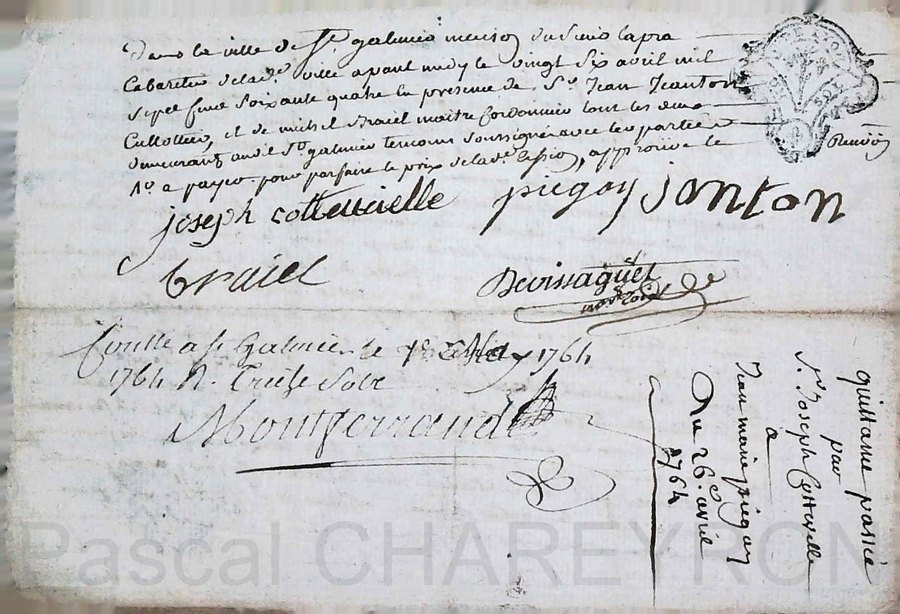 dans la ville de St galmier maison du Sieur lapra
Cabaretier de lad.e ville apant midy le vingt Six avril mil
Sept Cent Soixante quatre en presence de Sr Jean Jeanton
Cullottier, et de michel Braiel maitre Cordonnier tous les deux
demeurant aud.it St galmier temoins Soussignés avec les parties
a payer pour parfaire le prix de lad.e approuvé le
Renvoy
joseph cottencielle pigay janton
braiel Devissaguet
not.e Royal
Conlle a St Galmier le 1er May 1764
1764 R. Treize Sols
Montferrand
quittance passée
par
Sr Joseph Cottaville
a
Jean marie pigay
Du 26e avril
1764
Pascal CHAREYRON